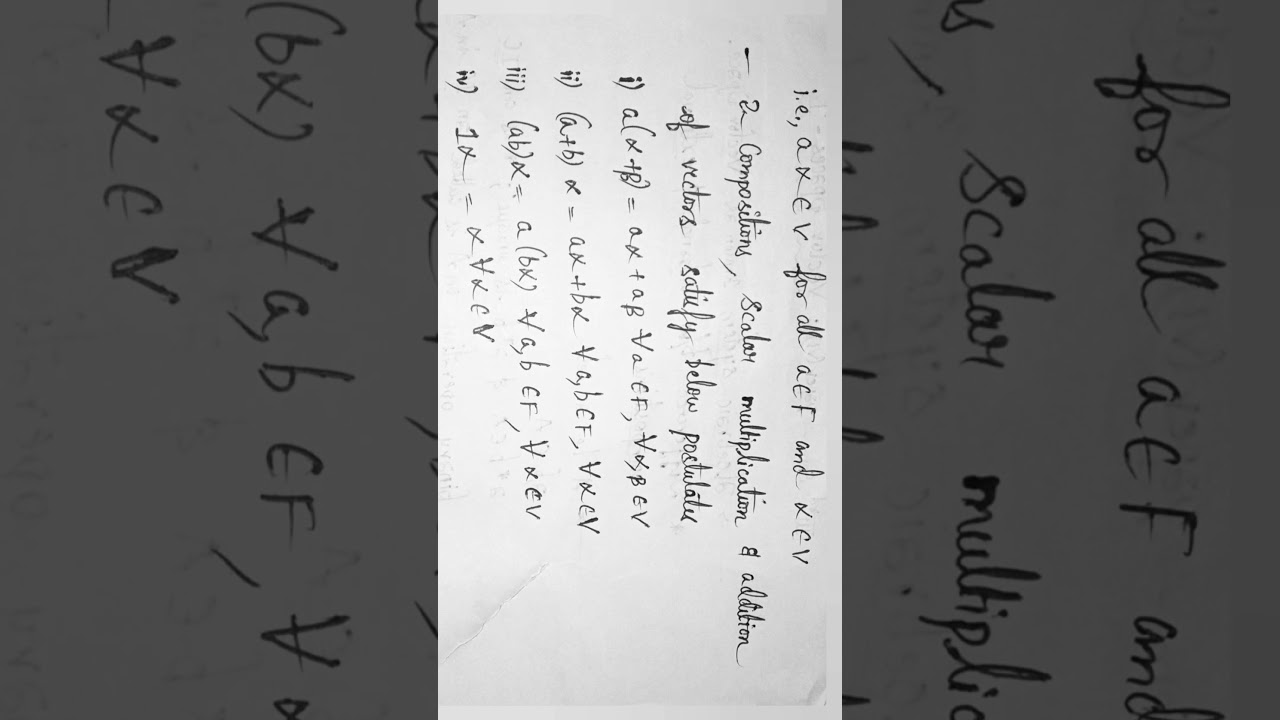 i.e., aα ∈ V for all a∈F and α ∈ V
– 2 Compositions, Scalar multiplication & addition
of vectors satisfy below postulates
i) a(α+β) = aα + aβ ∀a ∈F, ∀α,β ∈V
ii) (a+b) α = aα + bα ∀ a,b ∈F, ∀α∈V
iii) (ab)α = a(bα) ∀ a,b ∈F, ∀ α∈V
iv) 1α = α ∀α∈V